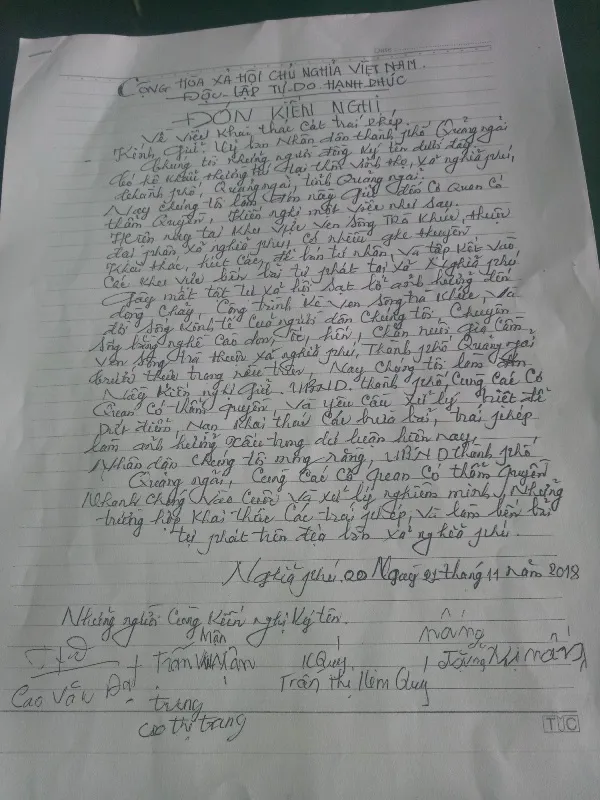 CỘNG HÒA XÃ HỘI CHỦ NGHĨA VIỆT NAM.
ĐỘC LẬP TỰ DO HẠNH PHÚC
ĐÓN KIẾN NGHỊ
Về Việc Khai thác Cát trái phép.
Kính gửi Uỷ ban Nhân dân thành phố Quảng ngãi
Chúng tôi những người đồng ký tên dưới đây
Có hộ khẩu thường trú tại thôn thọ, xã nghĩa phú,
thành phố, Quảng ngãi, tỉnh Quảng ngãi.
Nay chúng tôi làm đơn này gửi đến Cơ Quan Có
thẩm Quyền, Kiến nghị một Việc như sau.
Hiện nay tại Khu Vực Ven Sông Trà Khúc, thuộc
địa phận, xã nghĩa phú, Có nhiều ghe thuyền
Khai thác, hút Cát, để bán tư nhân, Và tập Kết Vào
Các Khu Vực bến bãi tự phát tại xã nghĩa phú
Gây mất trật tự xã hội sạt lở ảnh hưởng đến
dòng chảy, Công trình Kè Ven sông trà Khúc, Và
đời sống Kinh tế Của người dân Chúng tôi Chuyên
Sống bằng nghề Cào don, ốc, hến, Chăn nuôi gia Cầm,
Ven sông trà thuộc xã nghĩa phú, Thành phố Quảng ngãi
trước thực trạng nêu trên, Nay Chúng tôi làm đơn
Này Kiến nghị gửi. UBND. thành phố Cùng Các Cơ
Quan Có thẩm Quyền, Và yêu Cầu Xử lý triệt để
Dứt điểm, Nạn Khai thác Cát bừa bãi, trái phép
làm ảnh hưởng xấu trong dư luận hiện nay,
Nhân dân Chúng tôi mong rằng, UBND thành phố
Quảng ngãi, Cùng Các Cơ Quan Có thẩm Quyền
Nhanh Chóng Vào Cuộc Và xử lý nghiêm minh, Những
trường hợp Khai thác Cát trái phép, Và làm bến bãi
tự phát trên địa bàn xã nghĩa phú.
Nghĩa phú. Ngày 21 tháng 11 năm 2018
Những người Cùng Kiến nghị Ký tên.
Mận nắng
Trần Mận KQuý
Cao Văn Đạ Trần thị Kim Quy
trung
Cao thị trang
TC